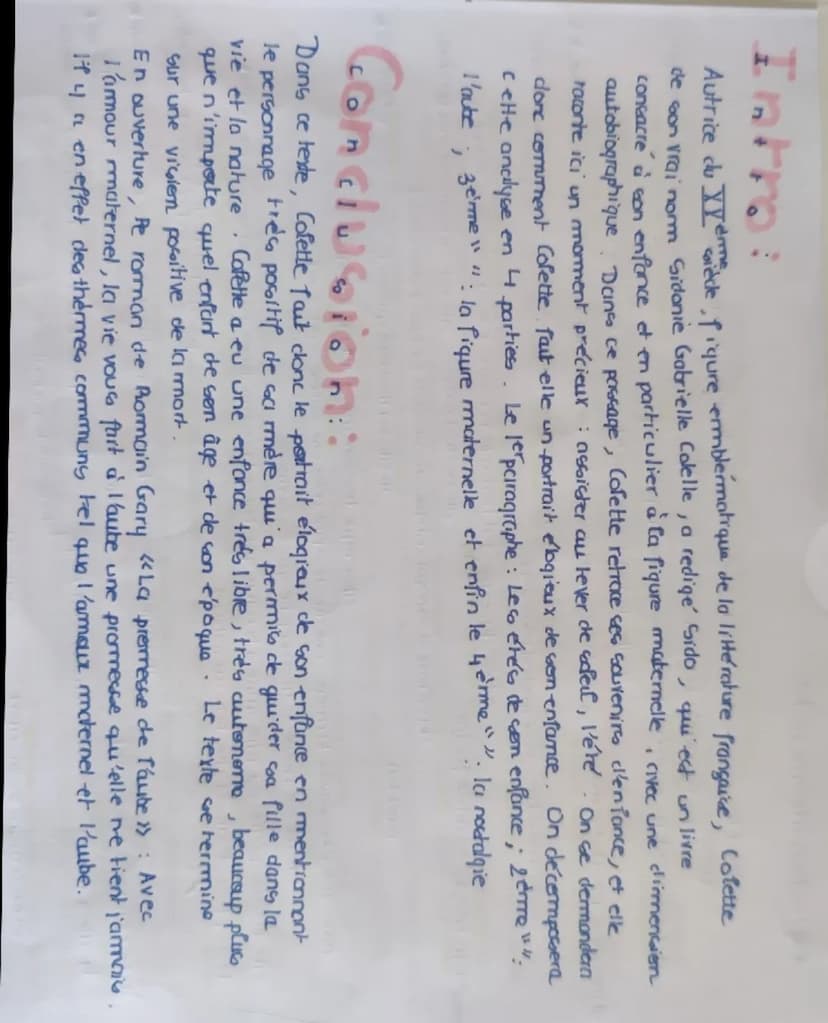 Intro:
Autrice du XXème siècle, figure emblématique de la littérature française, Colette
de son vrai nom Sidonie Gabrielle Colette, a rédigé Sido, qui est un livre
consacré à son enfance et en particulier à la figure maternelle, avec une dimension
autobiographique. Dans ce passage, Colette retrace ses souvenirs d'enfance, et elle
raconte ici un moment précieux : assister au lever de soleil, l'été. On se demandera
donc comment Colette fait elle un portrait élogieux de son enfance. On décomposera
cette analyse en 4 parties. Le 1er paragraphe : Les étés de son enfance ; 2ème " " :
l'aube ; 3ème " " : la figure maternelle et enfin le 4ème " " : la nostalgie
Conclusion :
Dans ce texte, Colette fait donc le portrait élogieux de son enfance en mentionnant
le personnage très positif de sa mère qui a permis de guider sa fille dans la
vie et la nature. Colette a eu une enfance très libre, très autonome, beaucoup plus
que n'importe quel enfant de son âge et de son époque. Le texte se termine
sur une vision positive de la mort.
En ouverture, le roman de Romain Gary « La promesse de l'aube » : Avec
l'amour maternel, la vie vous fait à l'aube une promesse qu'elle ne tient jamais.
Il y a en effet des thèmes communs tel que l'amour maternel et l'aube.